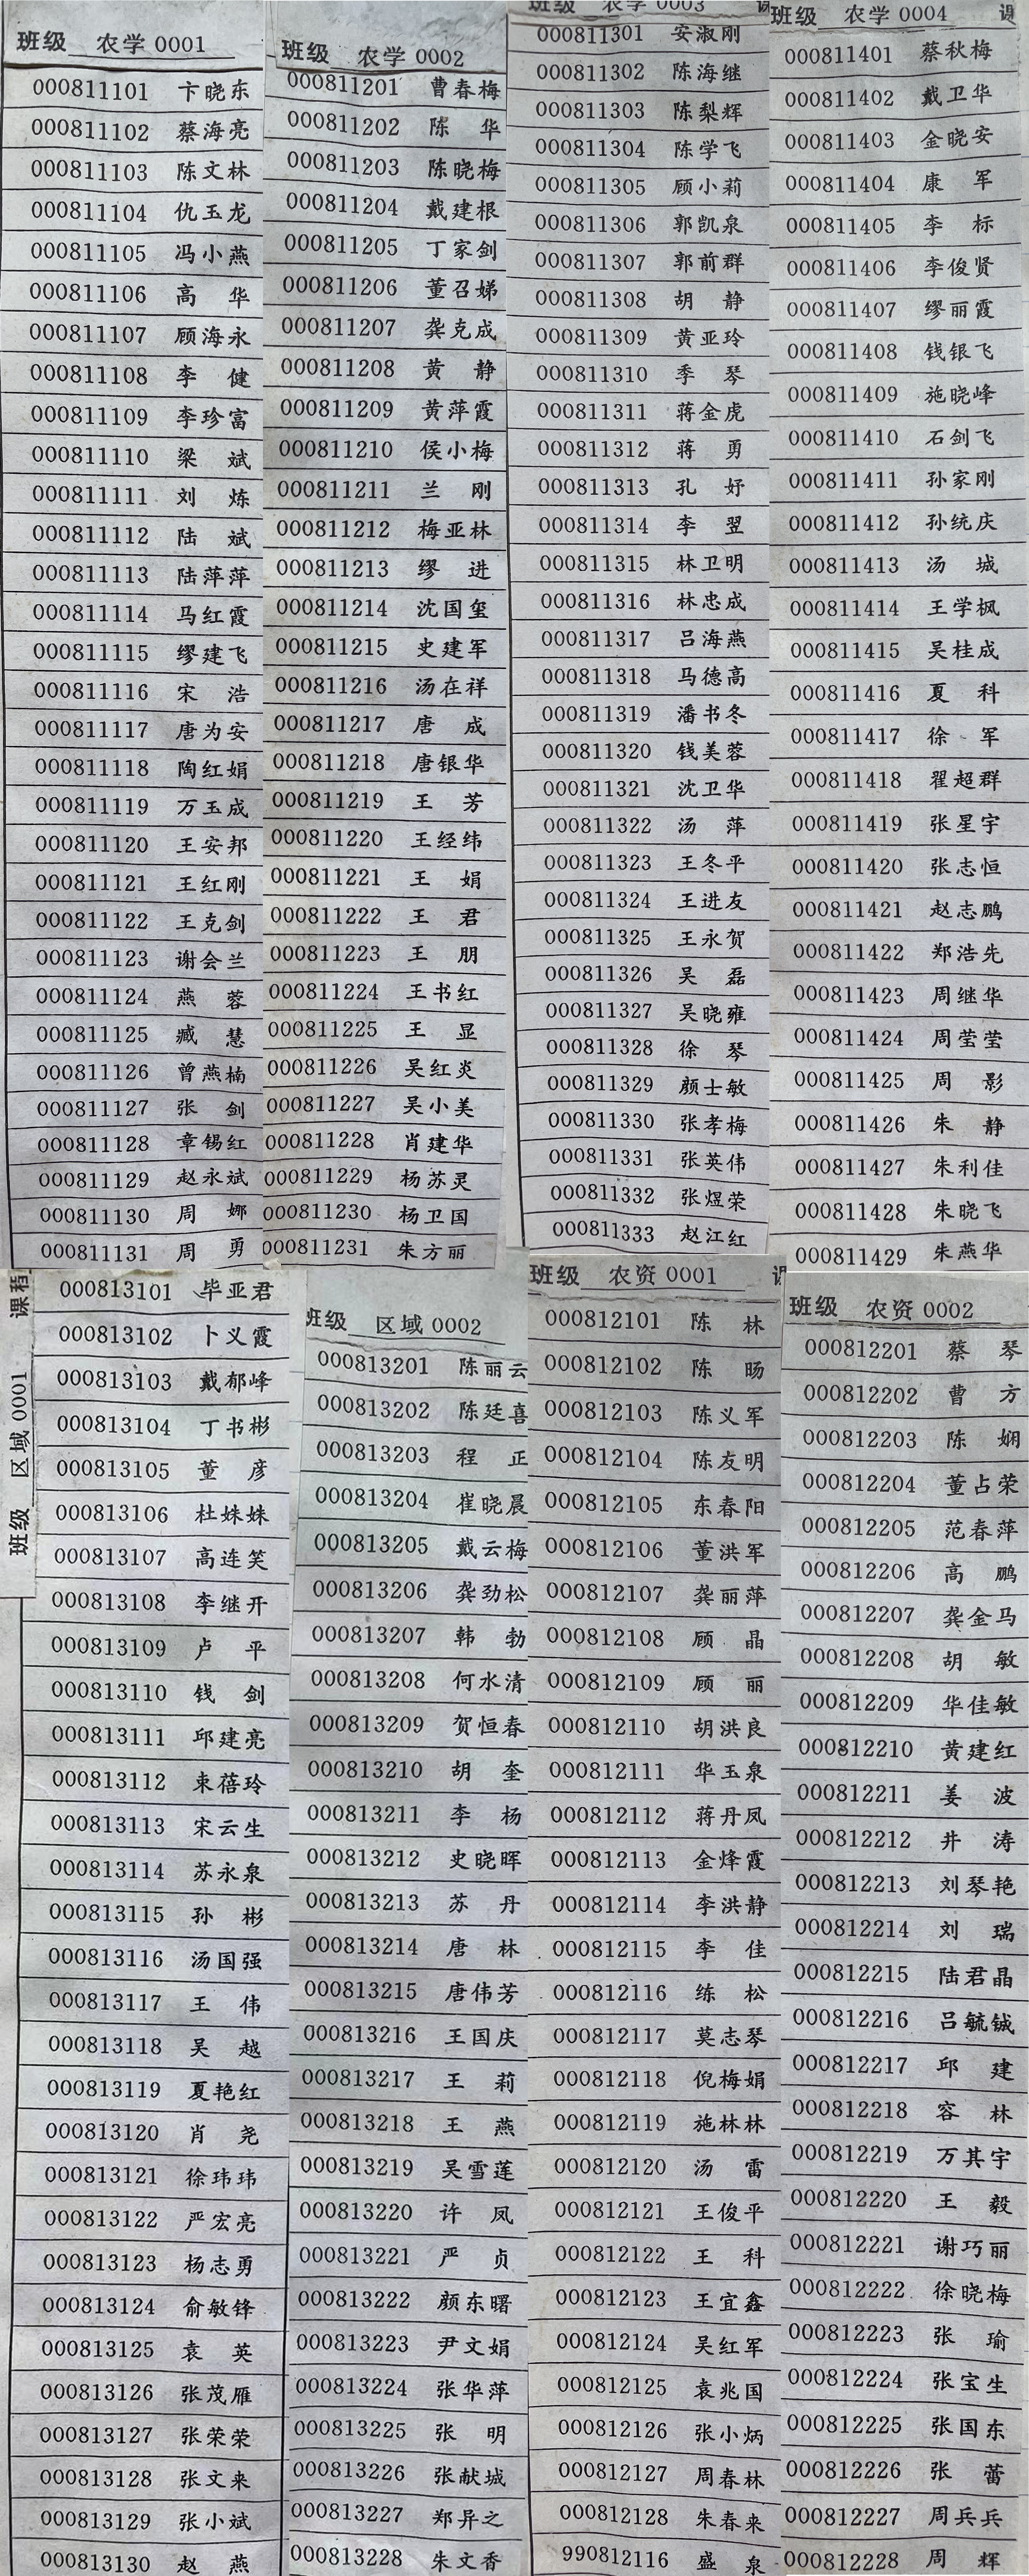 班级 农学 0001
000811101 卞晓东
000811102 蔡海亮
000811103 陈文林
000811104 仇玉龙
000811105 冯小燕
000811106 高 华
000811107 顾海永
000811108 李 健
000811109 李珍富
000811110 梁 斌
000811111 刘 炼
000811112 陆 斌
000811113 陆萍萍
000811114 马红霞
000811115 缪建飞
000811116 宋 浩
000811117 唐为安
000811118 陶红娟
000811119 万玉成
000811120 王安邦
000811121 王红刚
000811122 王克剑
000811123 谢会兰
000811124 燕 蓉
000811125 臧 慧
000811126 曾燕楠
000811127 张 剑
000811128 章锡红
000811129 赵永斌
000811130 周 娜
000811131 周 勇
班级 农学 0002
000811201 曹春梅
000811202 陈 华
000811203 陈晓梅
000811204 戴建根
000811205 丁家剑
000811206 董召娣
000811207 龚克成
000811208 黄 静
000811209 黄萍霞
000811210 侯小梅
000811211 兰 刚
000811212 梅亚林
000811213 缪 进
000811214 沈国玺
000811215 史建军
000811216 汤在祥
000811217 唐 成
000811218 唐银华
000811219 王 芳
000811220 王经纬
000811221 王 娟
000811222 王 君
000811223 王 朋
000811224 王书红
000811225 王 显
000811226 吴红炎
000811227 吴小美
000811228 肖建华
000811229 杨苏灵
000811230 杨卫国
000811231 朱方丽
班级 农学 0003
000811301 安淑刚
000811302 陈海继
000811303 陈梨辉
000811304 陈学飞
000811305 顾小莉
000811306 郭凯泉
000811307 郭前群
000811308 胡 静
000811309 黄亚玲
000811310 季 琴
000811311 蒋金虎
000811312 蒋 勇
000811313 孔 妤
000811314 李 翌
000811315 林卫明
000811316 林忠成
000811317 吕海燕
000811318 马德高
000811319 潘书冬
000811320 钱美蓉
000811321 沈卫华
000811322 汤 萍
000811323 王冬平
000811324 王进友
000811325 王永贺
000811326 吴 磊
000811327 吴晓雍
000811328 徐 琴
000811329 颜士敏
000811330 张孝梅
000811331 张英伟
000811332 张煜荣
000811333 赵江红
班级 农学 0004
000811401 蔡秋梅
000811402 戴卫华
000811403 金晓安
000811404 康 军
000811405 李 标
000811406 李俊贤
000811407 缪丽霞
000811408 钱银飞
000811409 施晓峰
000811410 石剑飞
000811411 孙家刚
000811412 孙统庆
000811413 汤 城
000811414 王学枫
000811415 吴桂成
000811416 夏 科
000811417 徐 军
000811418 翟超群
000811419 张星宇
000811420 张志恒
000811421 赵志鹏
000811422 郑浩先
000811423 周继华
000811424 周莹莹
000811425 周 影
000811426 朱 静
000811427 朱利佳
000811428 朱晓飞
000811429 朱燕华
班级 区域 0001 课程
000813101 毕亚君
000813102 卜义霞
000813103 戴郁峰
000813104 丁书彬
000813105 董 彦
000813106 杜姝姝
000813107 高连笑
000813108 李继开
000813109 卢 平
000813110 钱 剑
000813111 邱建亮
000813112 束蓓玲
000813113 宋云生
000813114 苏永泉
000813115 孙 彬
000813116 汤国强
000813117 王 伟
000813118 吴 越
000813119 夏艳红
000813120 肖 尧
000813121 徐玮玮
000813122 严宏亮
000813123 杨志勇
000813124 俞敏锋
000813125 袁 英
000813126 张茂雁
000813127 张荣荣
000813128 张文来
000813129 张小斌
000813130 赵 燕
班级 区域 0002
000813201 陈丽云
000813202 陈廷喜
000813203 程 正
000813204 崔晓晨
000813205 戴云梅
000813206 龚劲松
000813207 韩 勃
000813208 何水清
000813209 贺恒春
000813210 胡 奎
000813211 李 杨
000813212 史晓晖
000813213 苏 丹
000813214 唐 林
000813215 唐伟芳
000813216 王国庆
000813217 王 莉
000813218 王 燕
000813219 吴雪莲
000813220 许 凤
000813221 严 贞
000813222 颜东曙
000813223 尹文娟
000813224 张华萍
000813225 张 明
000813226 张献城
000813227 郑异之
000813228 朱文香
班级 农资 0001
000812101 陈 林
000812102 陈 旸
000812103 陈义军
000812104 陈友明
000812105 东春阳
000812106 董洪军
000812107 龚丽萍
000812108 顾 晶
000812109 顾 丽
000812110 胡洪良
000812111 华玉泉
000812112 蒋丹凤
000812113 金烽霞
000812114 李洪静
000812115 李 佳
000812116 练 松
000812117 莫志琴
000812118 倪梅娟
000812119 施林林
000812120 汤 雷
000812121 王俊平
000812122 王 科
000812123 王宜鑫
000812124 吴红军
000812125 袁兆国
000812126 张小炳
000812127 周春林
000812128 朱春来
990812116 盛 泉
班级 农资 0002
000812201 蔡 琴
000812202 曹 方
000812203 陈 娴
000812204 董占荣
000812205 范春萍
000812206 高 鹏
000812207 龚金马
000812208 胡 敏
000812209 华佳敏
000812210 黄建红
000812211 姜 波
000812212 井 涛
000812213 刘琴艳
000812214 刘 瑞
000812215 陆君晶
000812216 吕毓铖
000812217 邱 建
000812218 容 林
000812219 万其宇
000812220 王 毅
000812221 谢巧丽
000812222 徐晓梅
000812223 张 瑜
000812224 张宝生
000812225 张国东
000812226 张 蕾
000812227 周兵兵
000812228 周 辉